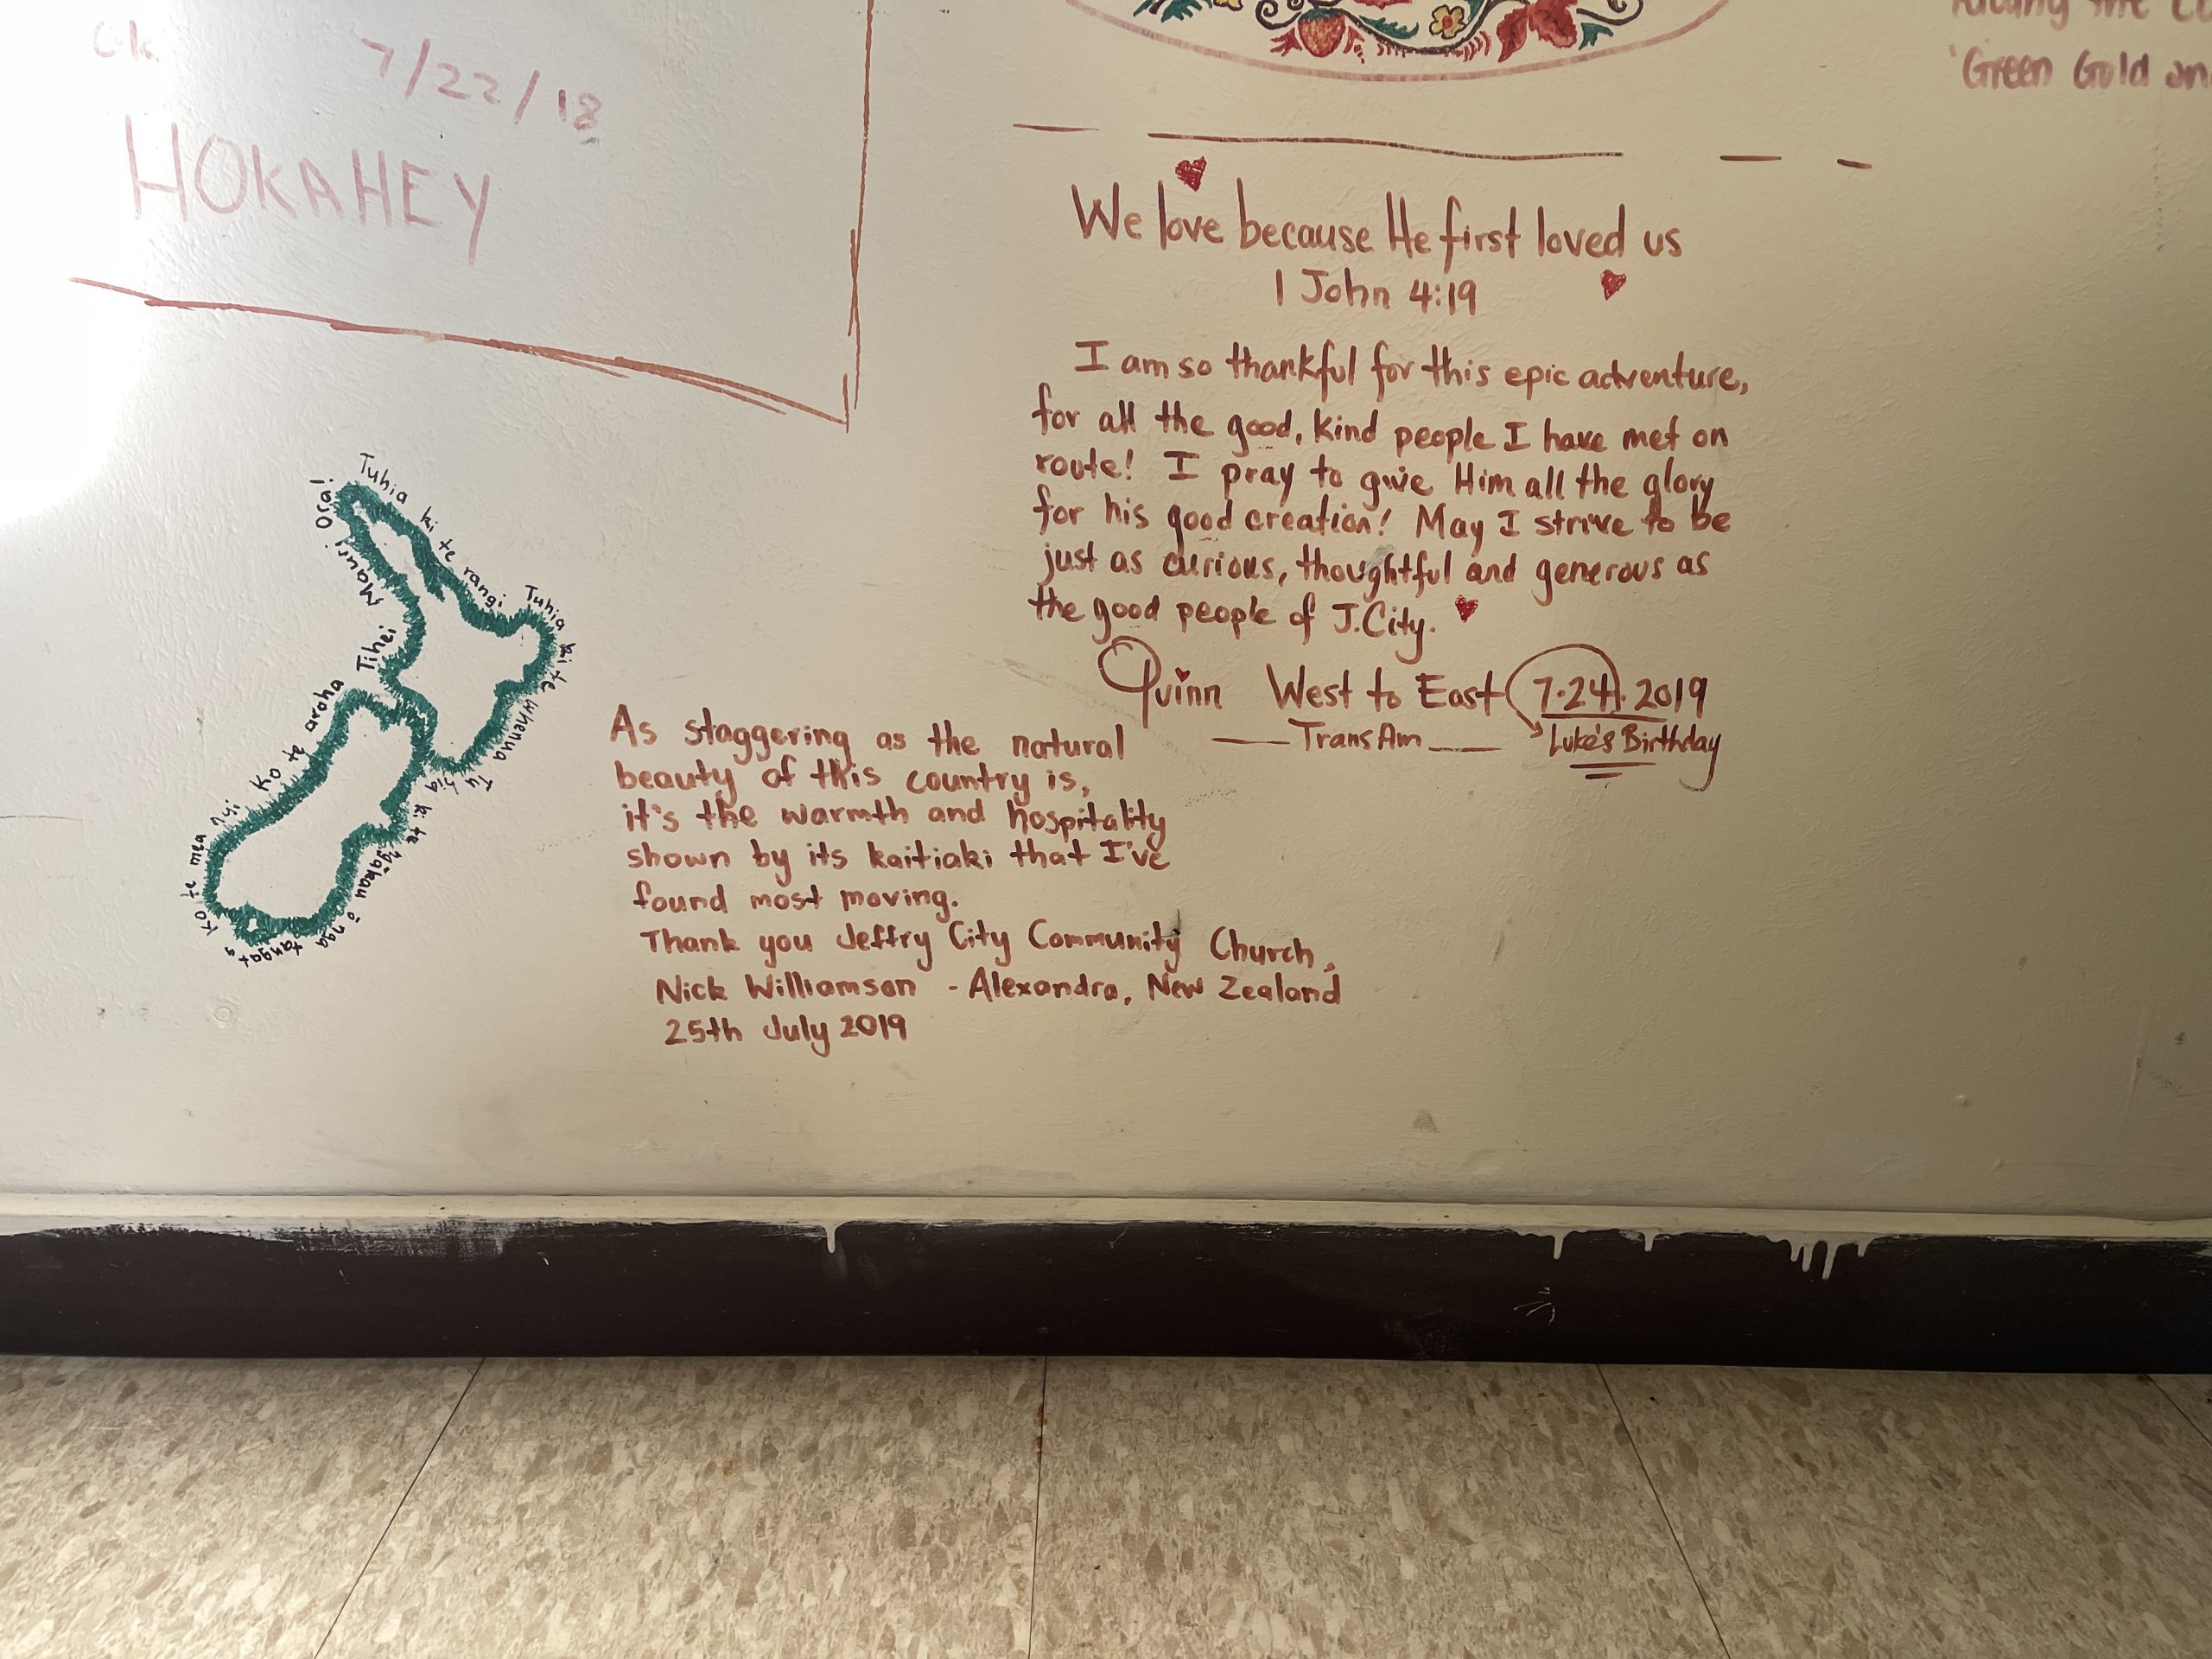 7/22/18
HOKAHEY
'Green Gold
We love because He first loved us
1 John 4:19
I am so thankful for this epic adventure,
for all the good, kind people I have met on
route! I pray to give Him all the glory
for his good creation! May I strive to be
just as curious, thoughtful and generous as
the good people of J.City.
Quinn West to East 7.24.2019
TransAm Luke's Birthday
Tuhia ki te rangi Tuhia ki te whenua Tuhia ki te ngākau ō nga tangata
Ko te mea nui Ko te aroha Tihei Mauri Ora!
As staggering as the natural
beauty of this country is,
it's the warmth and hospitality
shown by its kaitiaki that I've
found most moving.
Thank you Jeffry City Community Church,
Nick Williamson - Alexandra, New Zealand
25th July 2019